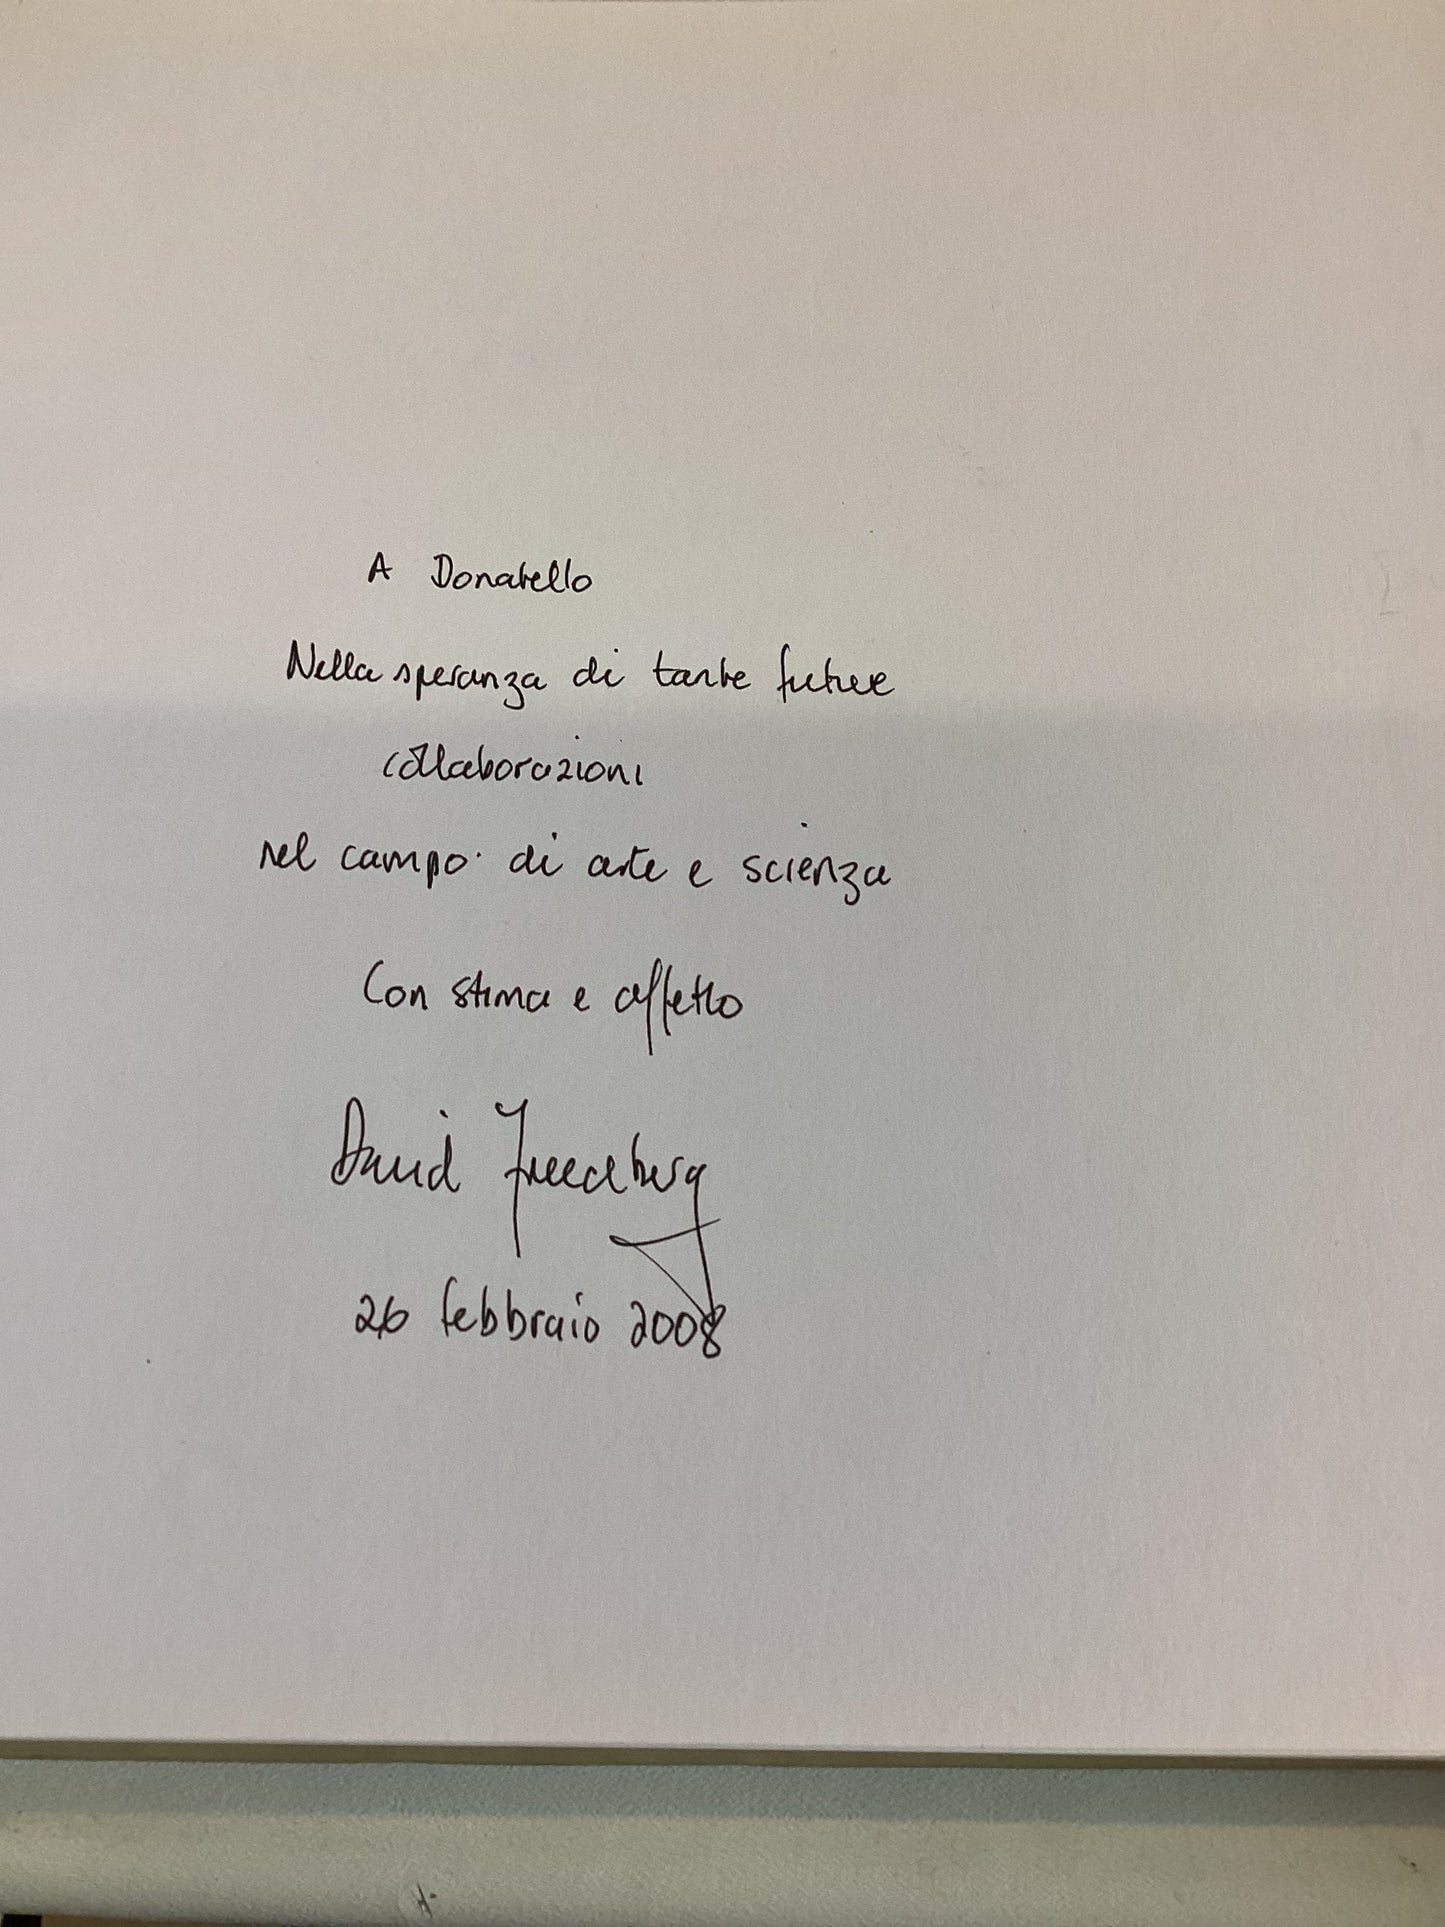 A Donatello
Nella speranza di tante future
collaborazioni
nel campo di arte e scienza
Con stima e affetto
David Freedberg
26 febbraio 2008